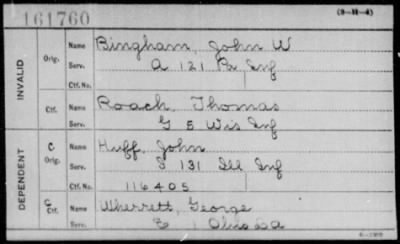 161760
(3-H-4)
INVALID
Orig.
Name Bingham, John W
Serv. A 121 Pa Inf
Ctf. No.
Ctf.
Name Roach, Thomas
Serv. G 5 Wis Inf
DEPENDENT
C
Orig.
Name Huff, John
Serv. I 131 Ill Inf
Ctf. No. 116405
C
Ctf.
Name Wherrett, George
Serv. E 1 Ohio LA